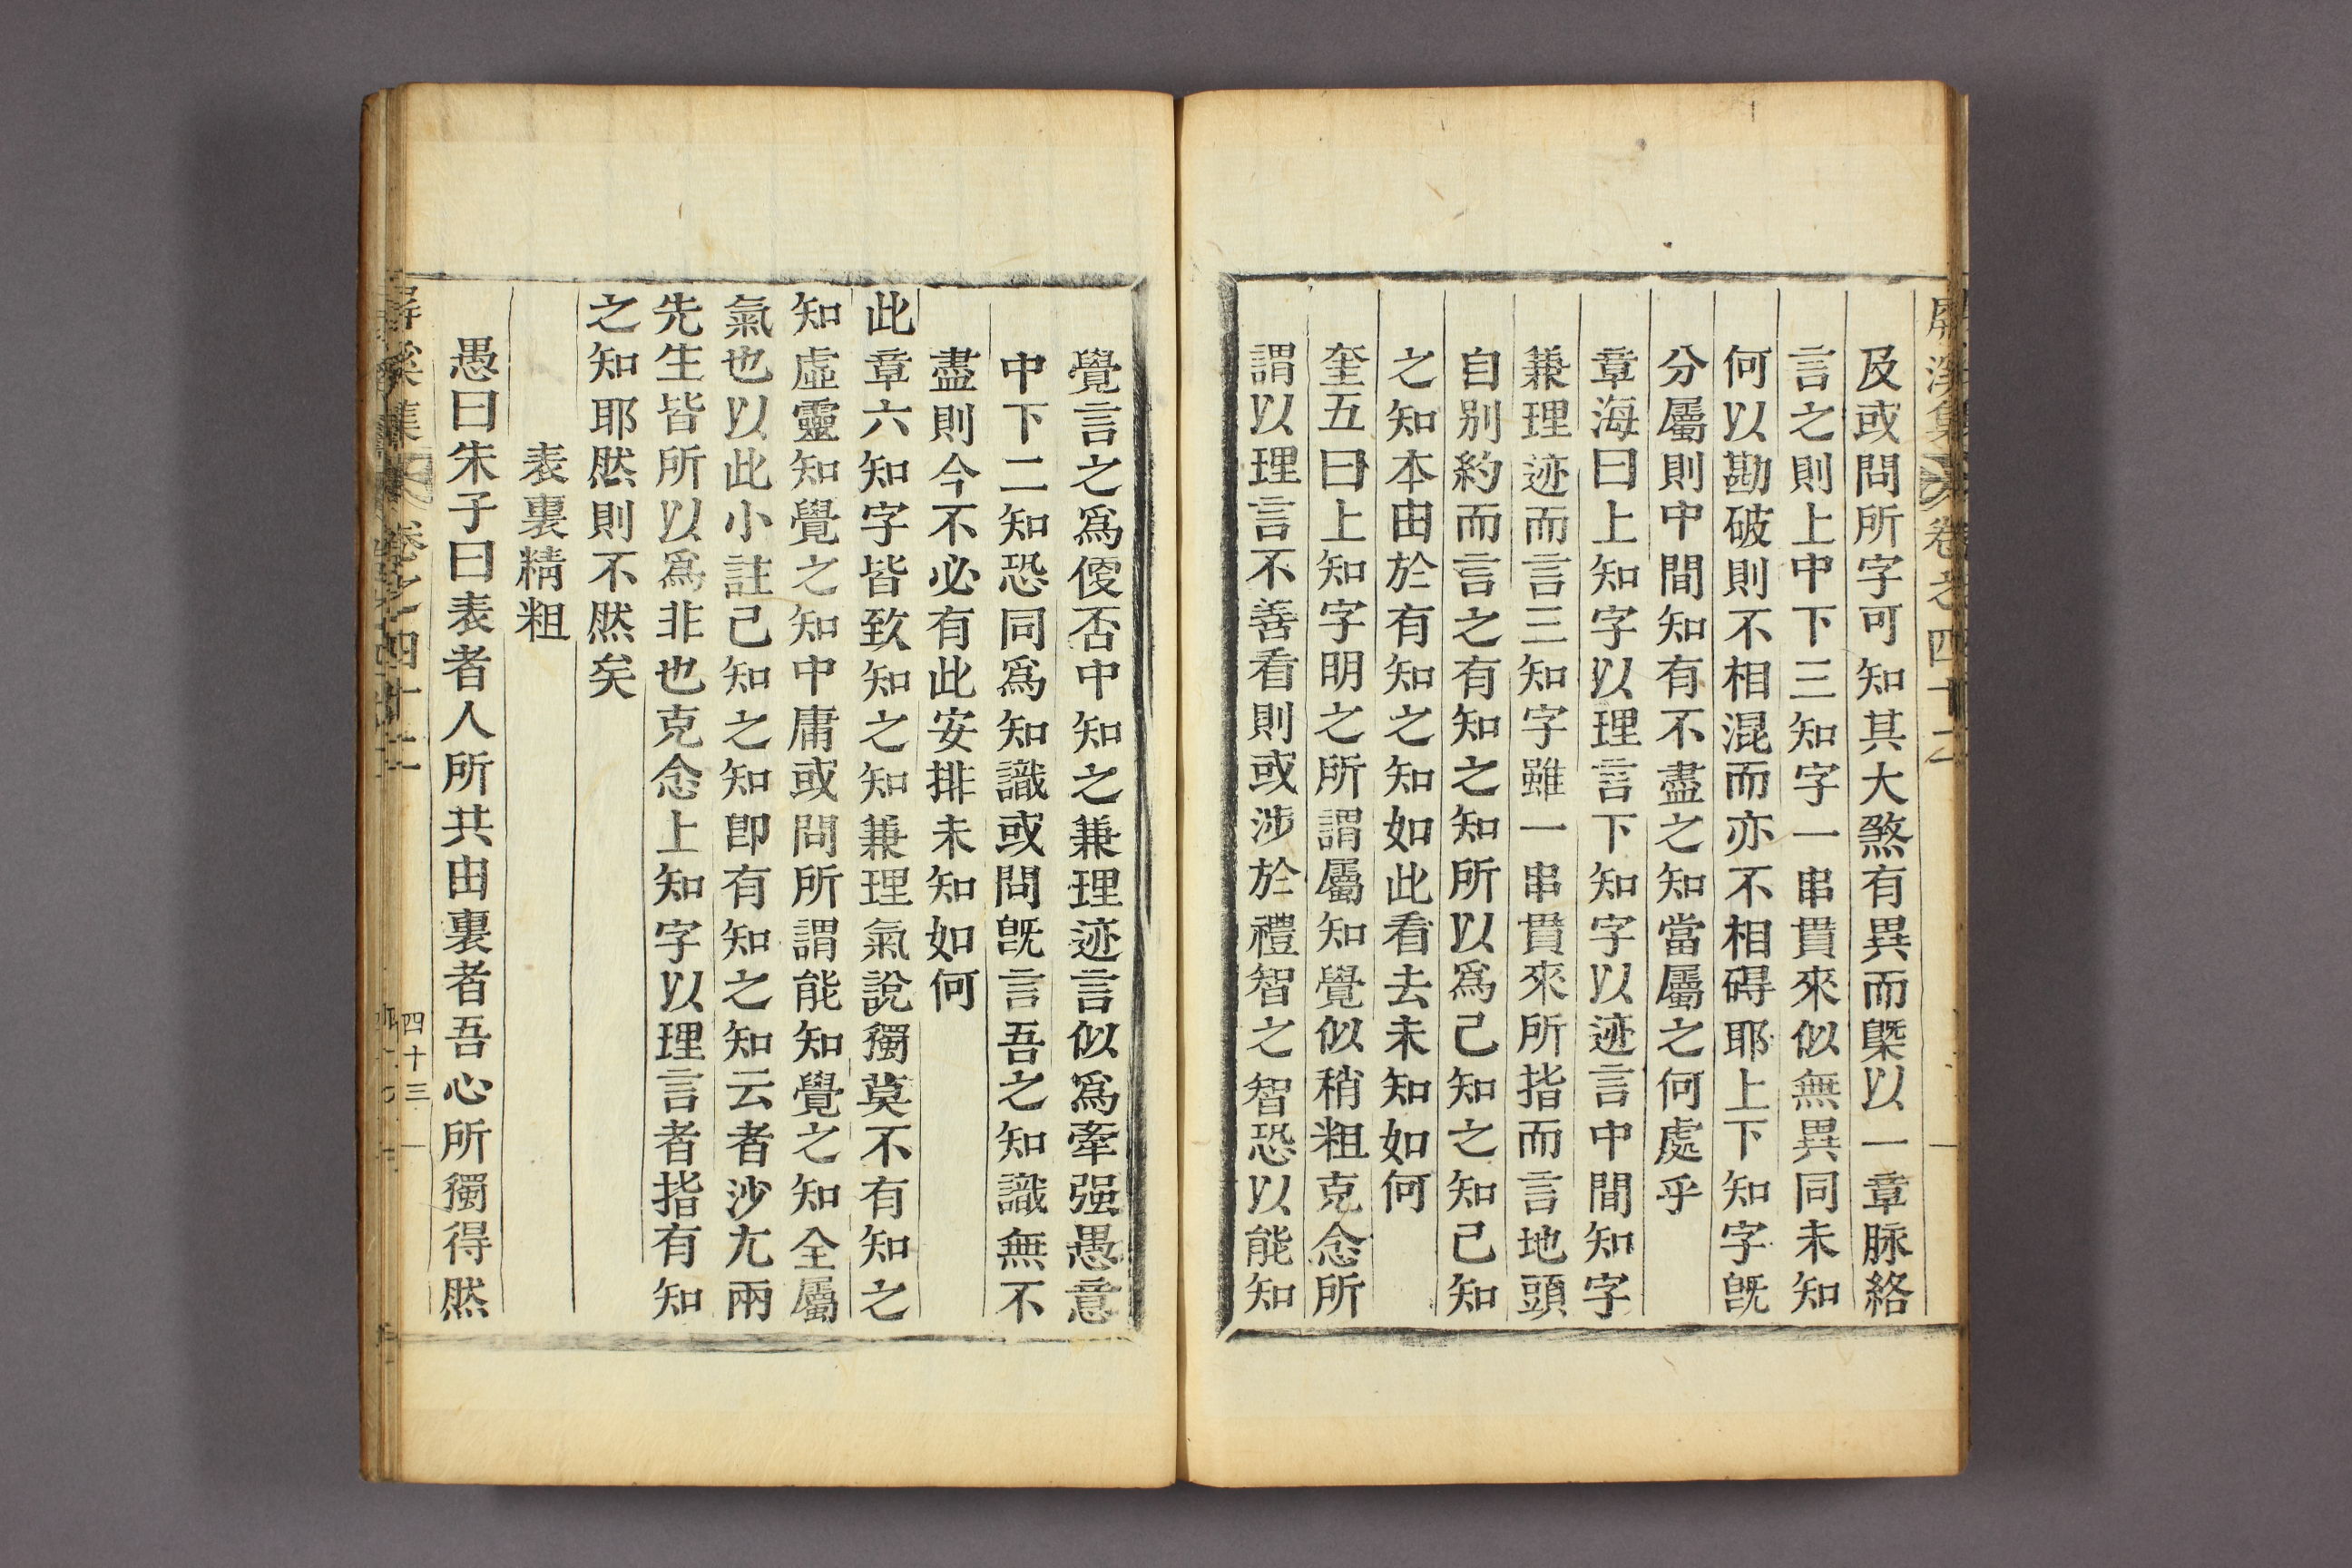 屛溪集卷之四十二
及或問所字可知其大煞有異而槩以一章脉絡
言之則上中下三知字一串貫來似無異同未知
何以勘破則不相混而亦不相碍耶上下知字旣
分屬則中間知有不盡之知當屬之何處乎
章海曰上知字以理言下知字以迹言中間知字
兼理迹而言三知字雖一串貫來所指而言地頭
自別約而言之有知之知所以爲己知之知己知
之知本由於有知之知如此看去未知如何
奎五曰上知字明之所謂屬知覺似稍粗克念所
謂以理言不善看則或涉於禮智之智恐以能知
覺言之爲傻否中知之兼理迹言似爲牽强愚意
中下二知恐同爲知識或問旣言吾之知識無不
盡則今不必有此安排未知如何
此章六知字皆致知之知兼理氣說獨莫不有知之
知虛靈知覺之知中庸或問所謂能知覺之知全屬
氣也以此小註己知之知卽有知之知云者沙尤兩
先生皆所以爲非也克念上知字以理言者指有知
之知耶然則不然矣
表裏精粗
愚曰朱子曰表者人所共由裏者吾心所獨得然
屛溪集 卷之四十二
四十三